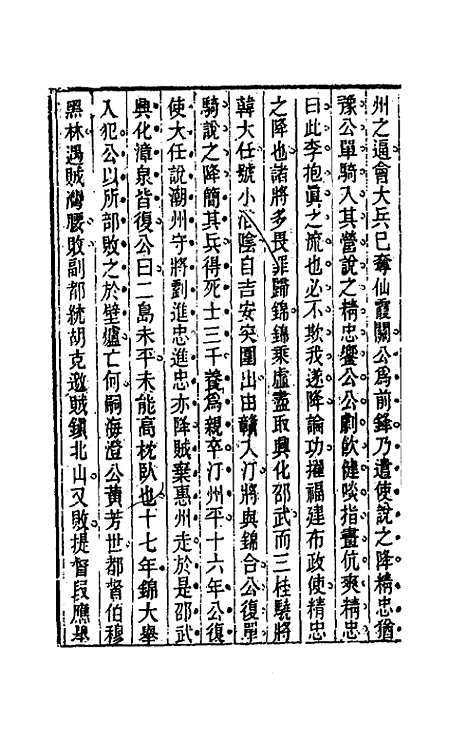 州之逼會大兵已奪仙霞關公爲前鋒乃遣使說之降精忠猶
豫公單騎入其營說之精忠饗公公劇飲健啖指畫伉爽精忠
曰此李抱眞之流也必不欺我遂降論功擢福建布政使精忠
之降也諸將多畏罪歸錦錦乘虛盡取興化邵武而三桂驍將
韓大任號小淮陰自吉安突圍出由贛入汀將與錦合公復單
騎說之降簡其兵得死士三千養爲親卒汀州平十六年公復
使大任說潮州守將劉進忠進忠亦降賊棄惠州走於是邵武
興化漳泉皆復公曰二島未平未能高枕臥也十七年錦大舉
入犯公以所部敗之於壁爐亡何嗣海澄公黃芳世都督伯穆
黑林遇賊灣腰敗副都統胡克遬賊鎭北山又敗提督段應舉